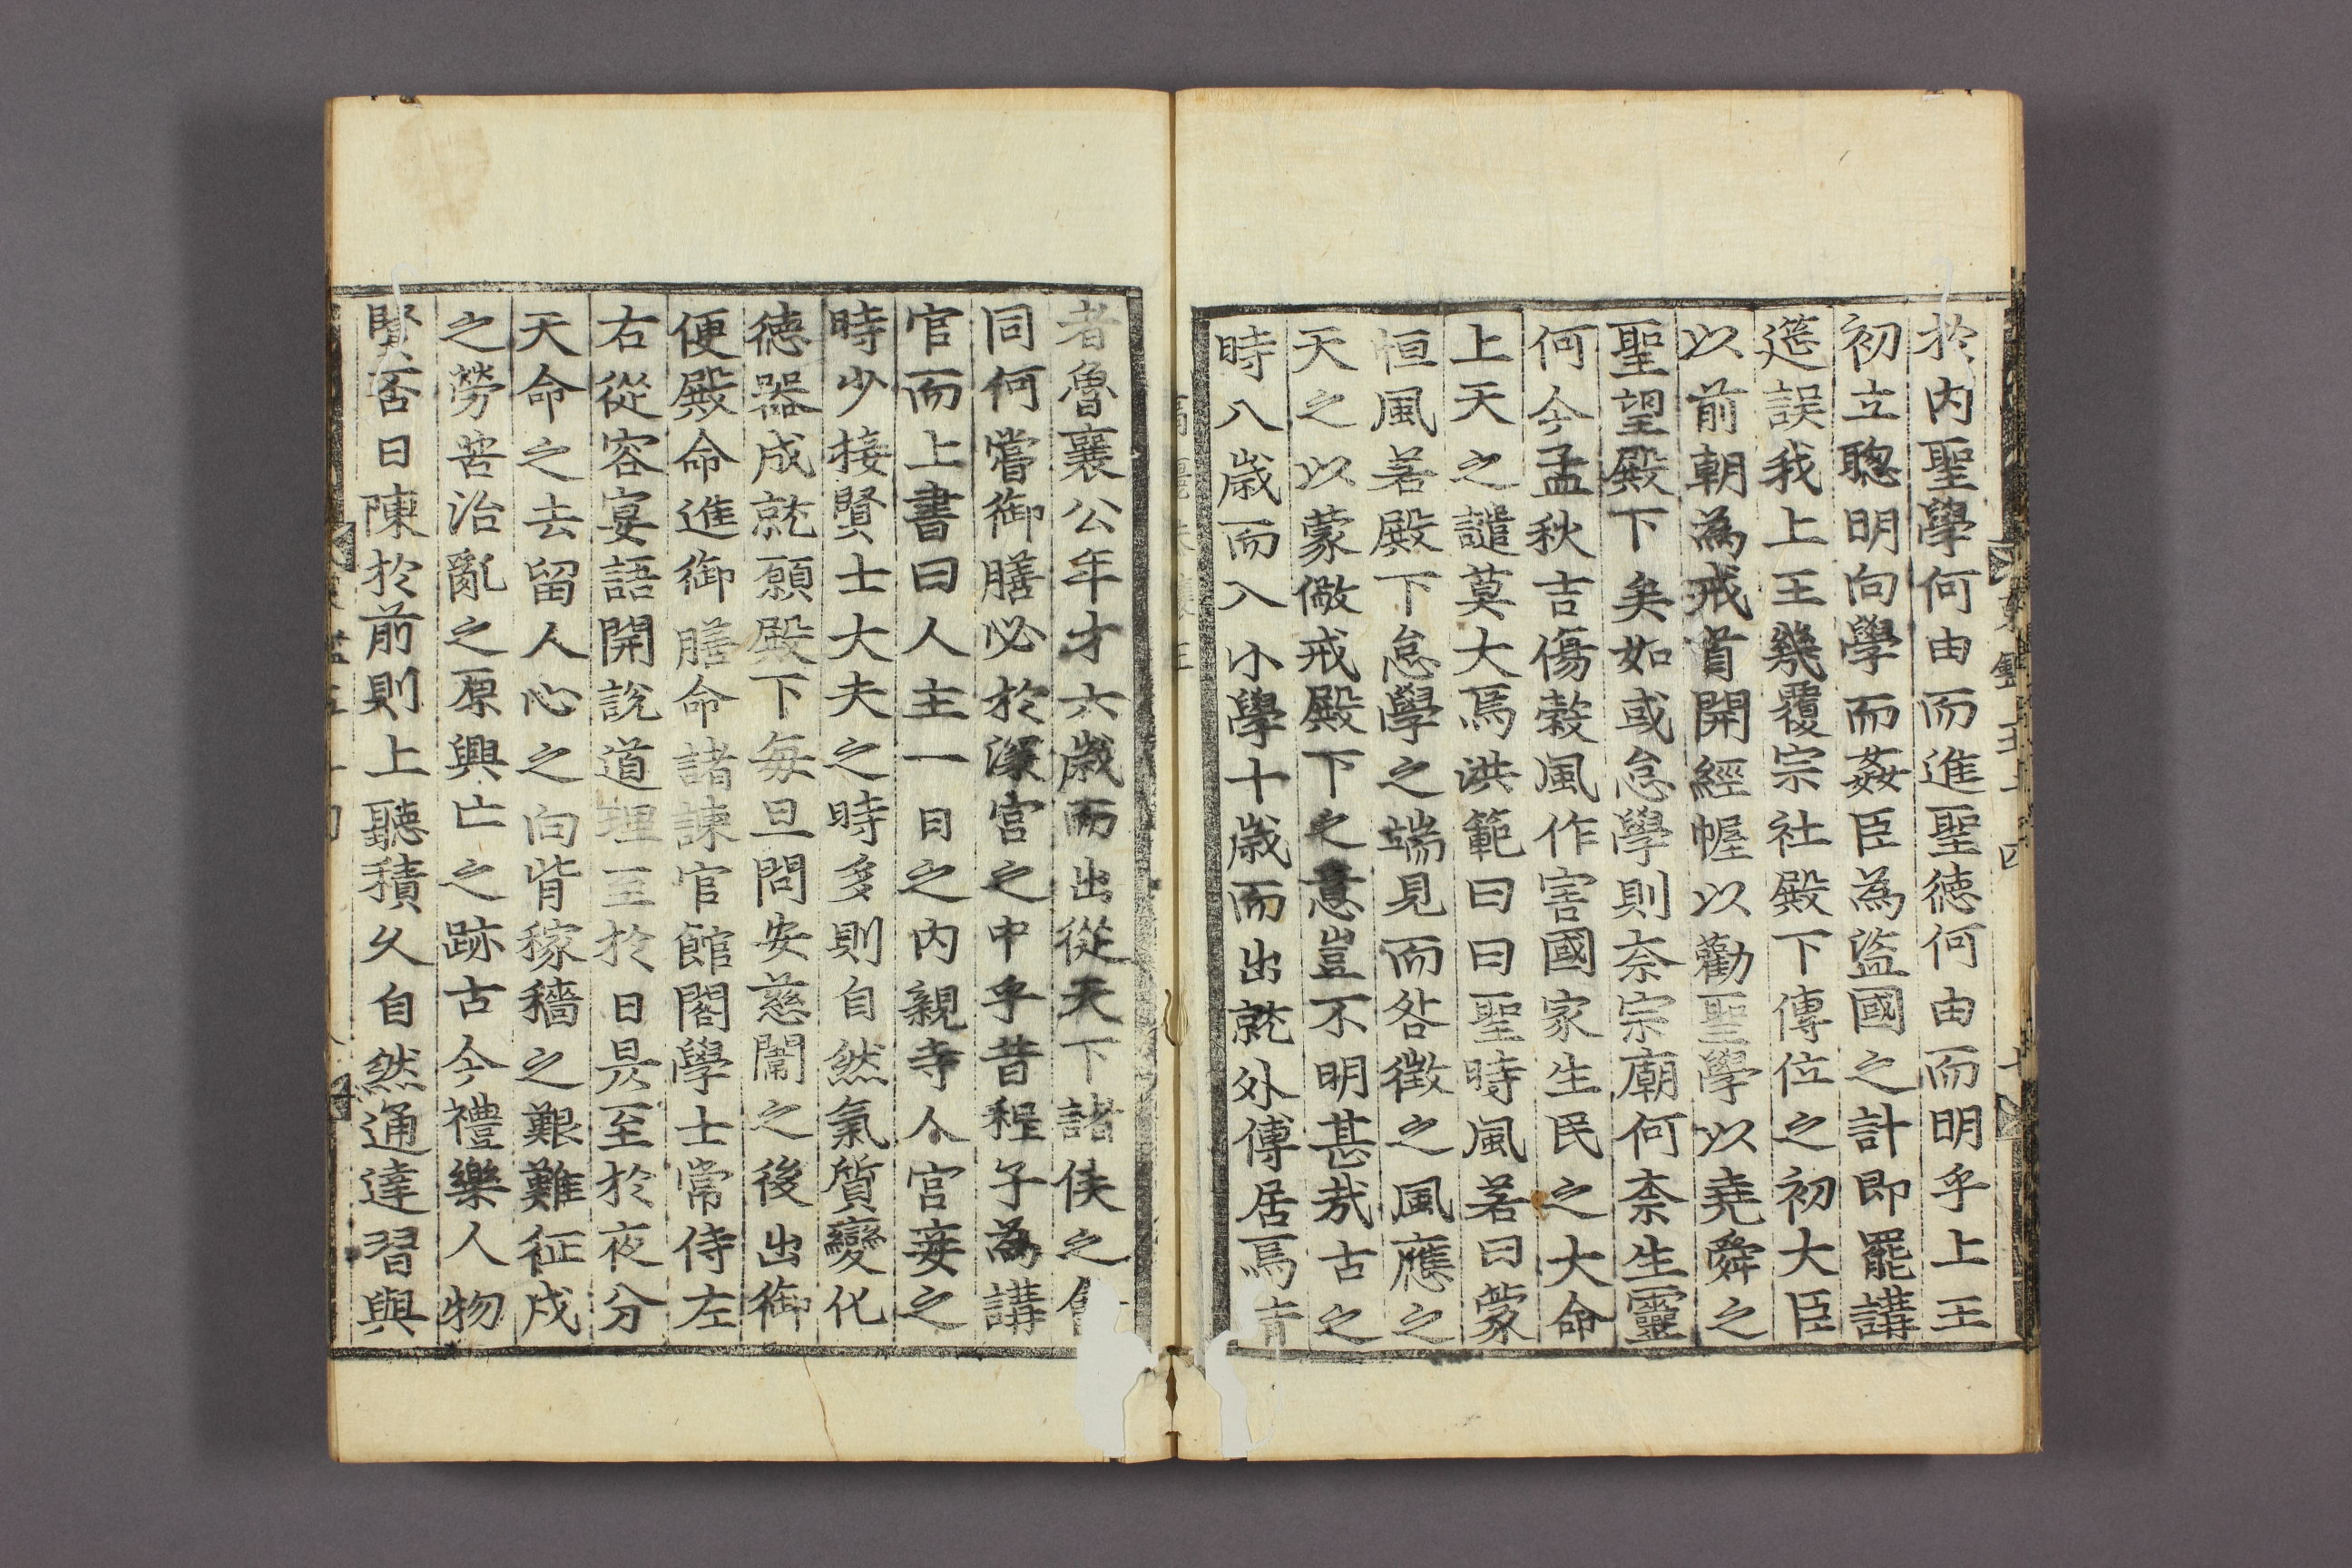 於内聖學何由而進聖德何由而明乎上王
初立聦明向學而姦臣為盜國之計即罷講
筵誤我上王幾覆宗社殿下傳位之初大臣
以前朝為戒首開經幄以勸聖學以堯舜之
聖望殿下矣如或怠學則柰宗廟何柰生靈
何今孟秋吉傷穀風作害國家生民之大命
上天之譴莫大焉洪範曰曰聖時風若曰蒙
恒風若殿下怠學之端見而咎徵之風應之
天之以蒙儆戒殿下之意豈不明甚㢤古之
時八歲而入小學十歲而出就外傅居焉
者魯襄公年才六歲而出從天下諸侯之
同何嘗御膳必於深宮之中乎昔程子為講
官而上書曰人主一日之内親寺人宮妾之
時少接賢士大夫之時多則自然氣質變化
德器成就願殿下每旦問安慈闈之後出御
便殿命進御膳命諸諫官館閣學士常侍左
右從容宴語開說道理至於日昃至於夜分
天命之去留人心之向背稼穡之艱難征戍
之勞苦治亂之原興亡之跡古今禮樂人物
賢否日陳於前則上聽積久自然通達習與